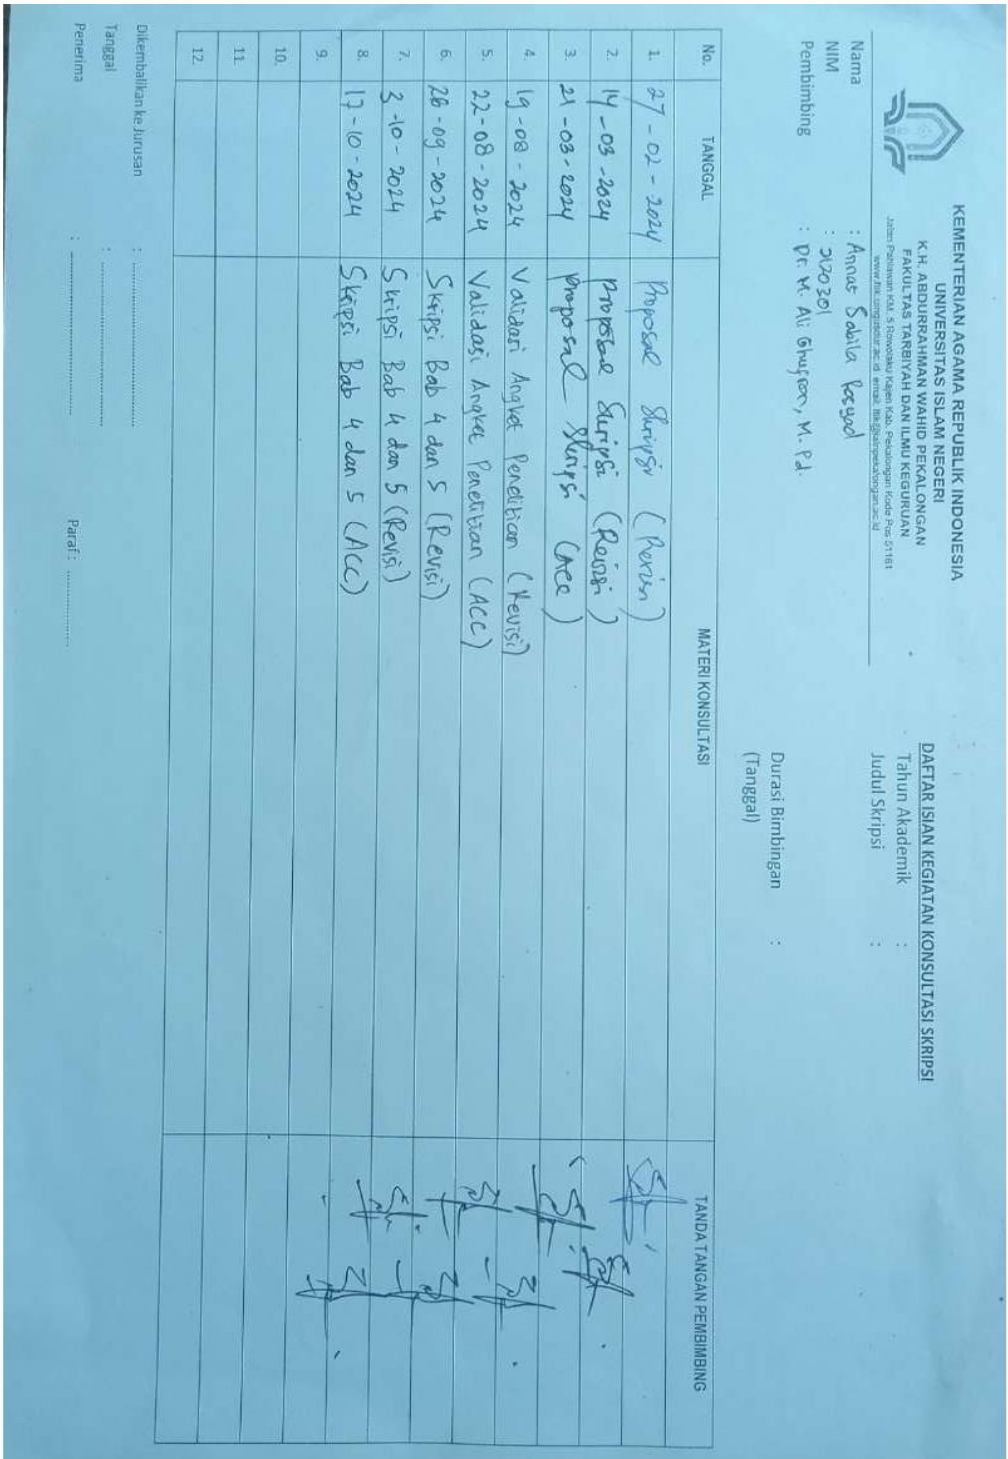 KEMENTERIAN AGAMA REPUBLIK INDONESIA
UNIVERSITAS ISLAM NEGERI
K.H. ABDURRAHMAN WAHID PEKALONGAN
FAKULTAS TARBIYAH DAN ILMU KEGURUAN
Jalan Pahlawan KM. 5 Rowolaku Kajen Kab. Pekalongan Kode Pos 51161
www.ftik.uingusdur.ac.id email: ftik@iainpekalongan.ac.id
DAFTAR ISIAN KEGIATAN KONSULTASI SKRIPSI
Tahun Akademik :
Judul Skripsi :
Nama : Annas Sabila Rasyad
NIM : 2120301
Pembimbing : Dr. M. Ali Ghufron, M. Pd.
Durasi Bimbingan :
(Tanggal)
No. TANGGAL MATERI KONSULTASI TANDA TANGAN PEMBIMBING
1. 27 - 02 - 2024 Proposal Skripsi (Revisi)
2. 14 - 03 - 2024 Proposal Skripsi (Revisi)
3. 21 - 03 - 2024 Proposal Skripsi (ACC)
4. 19 - 08 - 2024 Validasi Angket Penelitian (Revisi)
5. 22 - 08 - 2024 Validasi Angket Penelitian (ACC)
6. 26 - 09 - 2024 Skripsi Bab 4 dan 5 (Revisi)
7. 3 - 10 - 2024 Skripsi Bab 4 dan 5 (Revisi)
8. 17 - 10 - 2024 Skripsi Bab 4 dan 5 (ACC)
9.
10.
11.
12.
Dikembalikan ke Jurusan : ..............................
Tanggal : ..............................
Penerima : .............................. Paraf : ...............